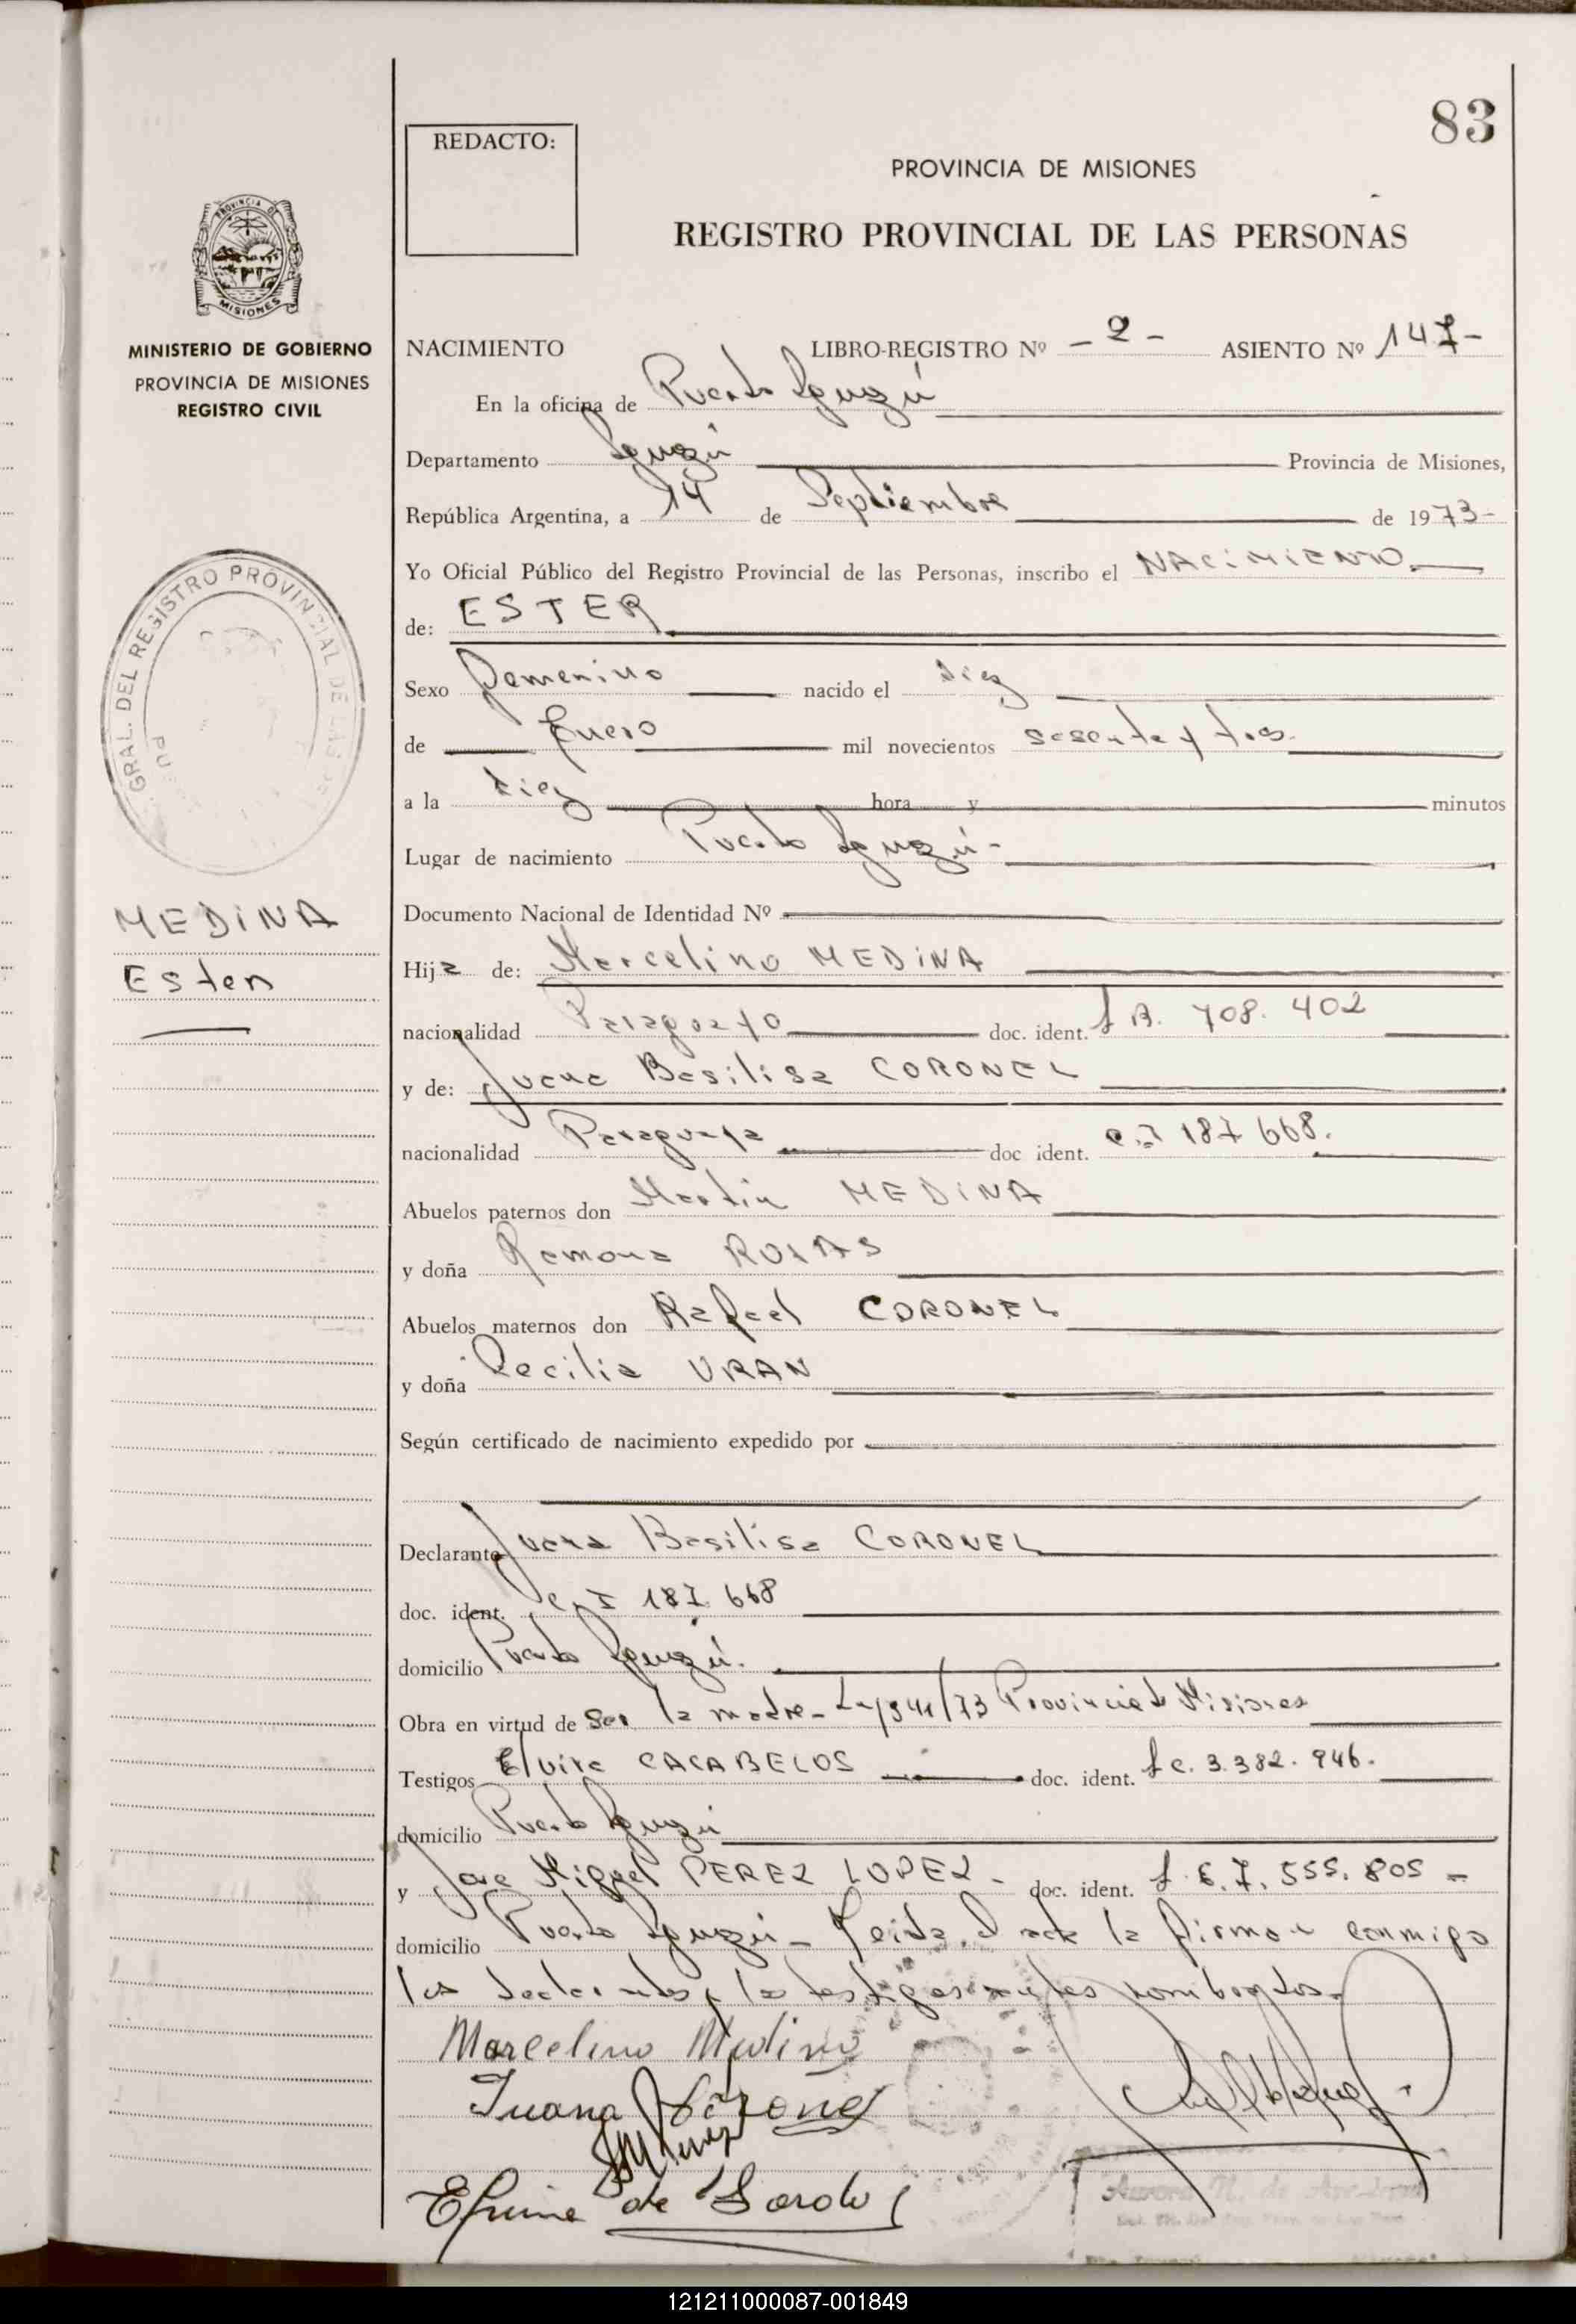 83
REDACTO:
PROVINCIA DE MISIONES
REGISTRO PROVINCIAL DE LAS PERSONAS
PROVINCIA DE
MISIONES
MINISTERIO DE GOBIERNO
PROVINCIA DE MISIONES
REGISTRO CIVIL
NACIMIENTO LIBRO-REGISTRO Nº - 2 - ASIENTO Nº 147-
En la oficina de Puerto Iguazú
Departamento Iguazú Provincia de Misiones,
República Argentina, a 14 de Septiembre de 1973-
Yo Oficial Público del Registro Provincial de las Personas, inscribo el NACIMIENTO.
de: ESTER
GRAL. DEL REGISTRO PROVINCIAL DE LAS
Sexo Femenino nacido el diez
de Enero mil novecientos sesenta y tres.
a la diez hora y minutos
Lugar de nacimiento Puerto Iguazú-
MEDINA
Ester
Documento Nacional de Identidad Nº
Hija de: Marcelino MEDINA
nacionalidad Paraguayo doc. ident. 708.402
y de: Juana Basilisa CORONEL
nacionalidad Paraguaya doc ident. C.I 187.668.
Abuelos paternos don Martin MEDINA
y doña Ramona ROJAS
Abuelos maternos don Rafael CORONEL
y doña Cecilia URAN
Según certificado de nacimiento expedido por
Declarante Juana Basilisa CORONEL
doc. ident. C.I 187.668
domicilio Puerto Iguazú.
Obra en virtud de Ser la madre- Ley 941/73 Provincia de Misiones
Testigos Elvira CACABELOS doc. ident. L.C. 3.382.946.
domicilio Puerto Iguazú
y Jose Miguel PEREZ LOPEZ- doc. ident. L.E. 7.555.805 -
domicilio Puerto Iguazú- Leida el acta la firman conmigo
los declarantes y los testigos antes nombrados.
Marcelino Medina
Juana Coronel
121211000087-001849